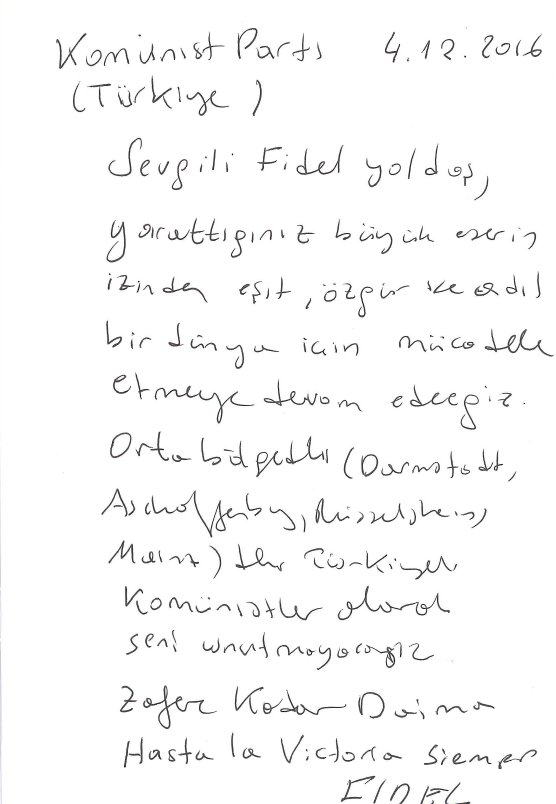 Komünist Parti 4.12.2016
(Türkiye)
Sevgili Fidel yoldaş,
yarattığınız büyük eserin
izinden eşit, özgür ve adil
bir dünya için mücadele
etmeye devam edeceğiz.
Orta bölgedeki (Darmstadt,
Aschaffenburg, Rüsselsheim,
Mainz) Türkiyeli
Komünistler olarak
seni unutmayacağız
Zafer Kadar Daima
Hasta la Victoria Siempre
FIDEL